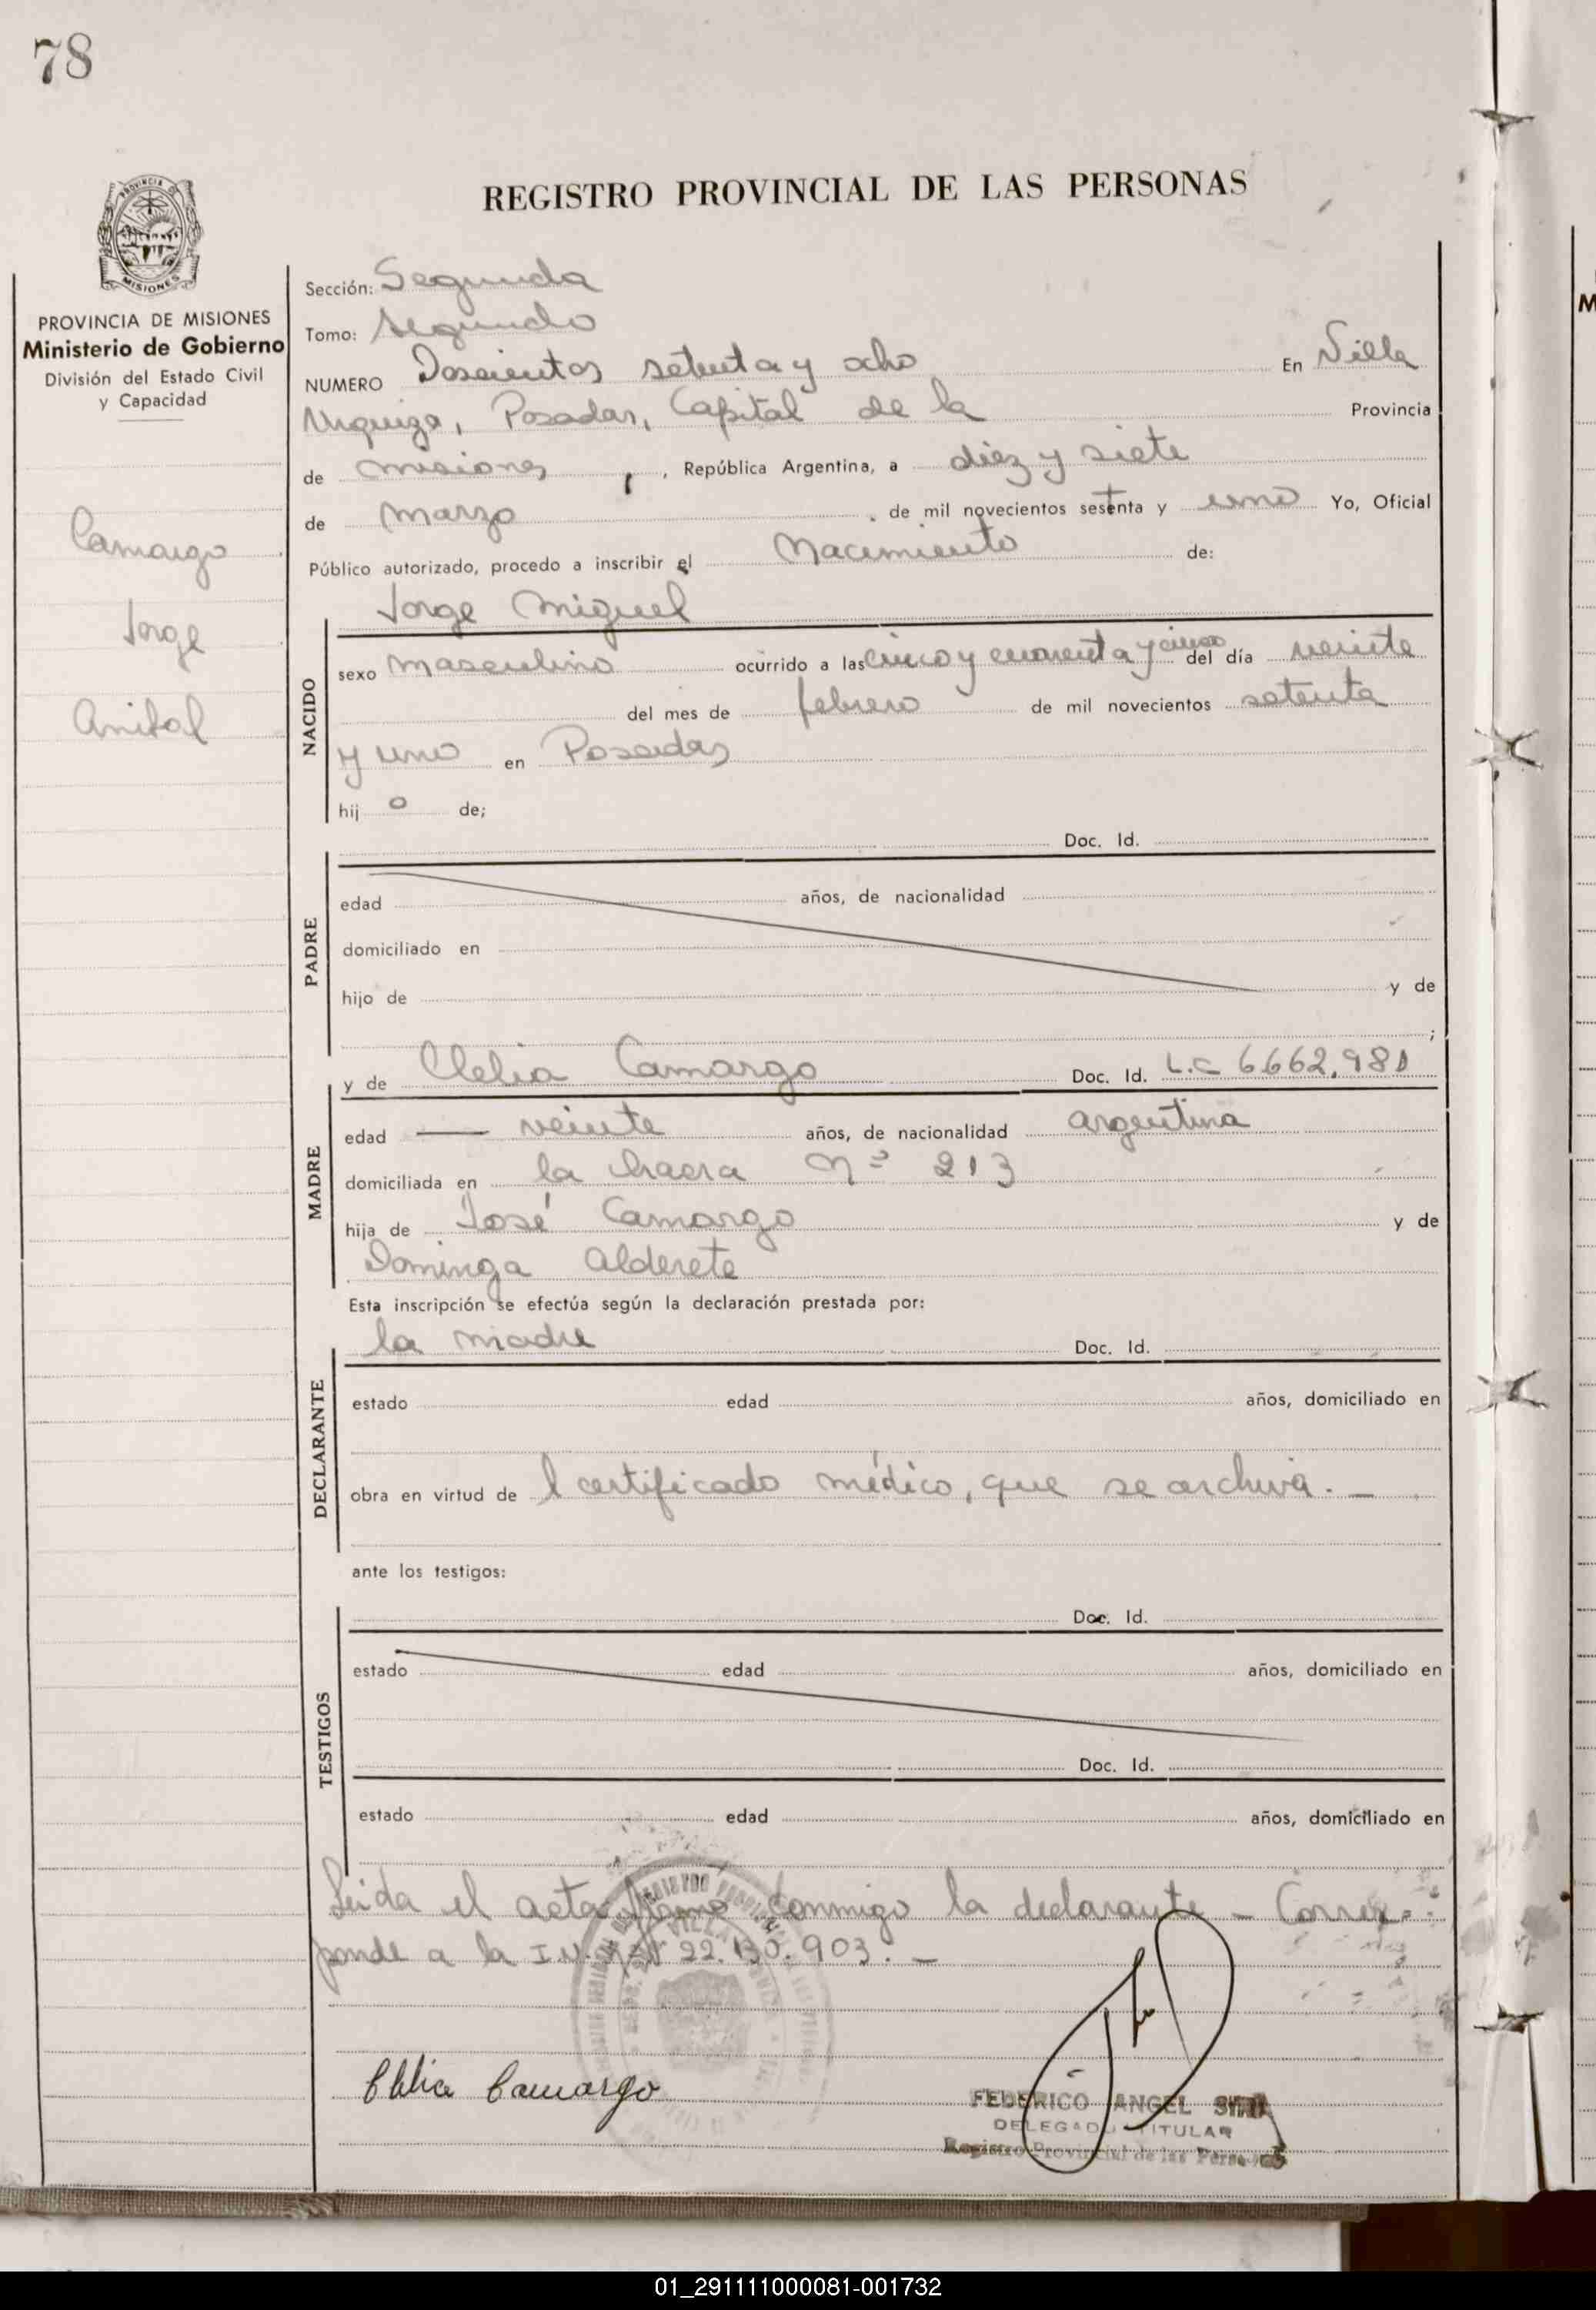 78
REGISTRO PROVINCIAL DE LAS PERSONAS
PROVINCIA DE MISIONES
PROVINCIA DE MISIONES
Ministerio de Gobierno
División del Estado Civil
y Capacidad
Camargo
Jorge
Anibal
Sección: Segunda
Tomo: Segundo
NUMERO Doscientos setenta y ocho En Villa
Urquiza, Posadas, Capital de la Provincia
de Misiones, , República Argentina, a diez y siete
de marzo de mil novecientos setenta y uno Yo, Oficial
Público autorizado, procedo a inscribir el Nacimiento de:
Jorge Miguel
NACIDO
sexo Masculino ocurrido a las cinco y cuarenta y cinco del día veinte
del mes de febrero de mil novecientos setenta
y uno en Posadas
hij o de;
Doc. Id.
PADRE
edad años, de nacionalidad
domiciliado en
hijo de y de
;
y de Clelia Camargo Doc. Id. L.C 6.662.981
MADRE
edad — veinte años, de nacionalidad argentina
domiciliada en la chacra Nº 213
hija de José Camargo y de
Dominga Alderete
Esta inscripción se efectúa según la declaración prestada por:
la madre Doc. Id.
DECLARANTE
estado edad años, domiciliado en
obra en virtud de l certificado médico, que se archiva. —
ante los testigos:
Doc. Id.
TESTIGOS
estado edad años, domiciliado en
Doc. Id.
estado edad años, domiciliado en
Leída el acta firma conmigo la declarante — Corres-
ponde a la 22.130.903. —
Clelia Camargo
FEDERICO ANGEL
DELEGADO TITULAR
Registro Provincial de las Personas
01_291111000081-001732